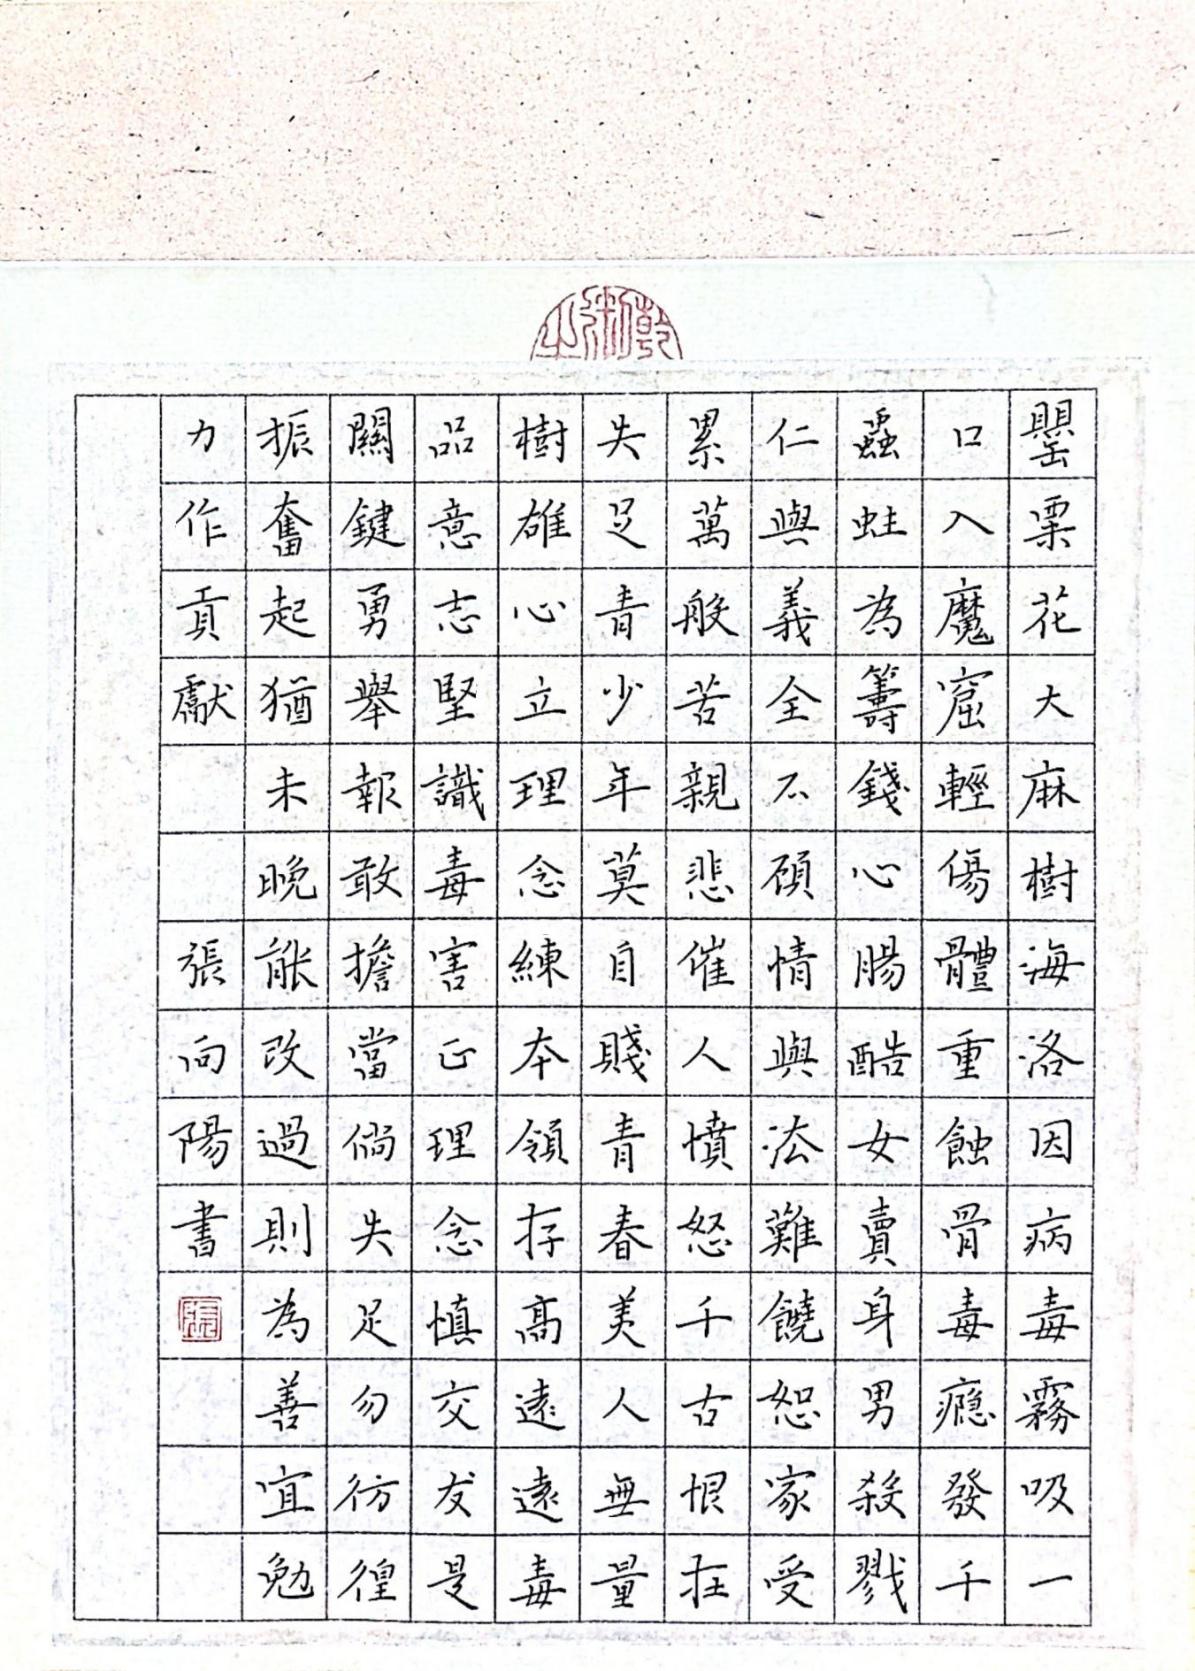 罌粟花大麻樹海洛因病毒霧吸一
口入魔窟輕傷體重蝕骨毒癮發千
蟲蛀為籌錢心腸酷女賣身男殺戮
仁與義全不顧情與法難饒恕家受
累萬般苦親悲催人憤怒千古恨在
失足青少年莫自賤青春美人無量
樹雄心立理念練本領存高遠遠毒
品意志堅識毒害正理念慎交友是
關鍵勇舉報敢擔當倘失足勿彷徨
振奮起猶未晚能改過則為善宜勉
力作貢獻
張向陽書